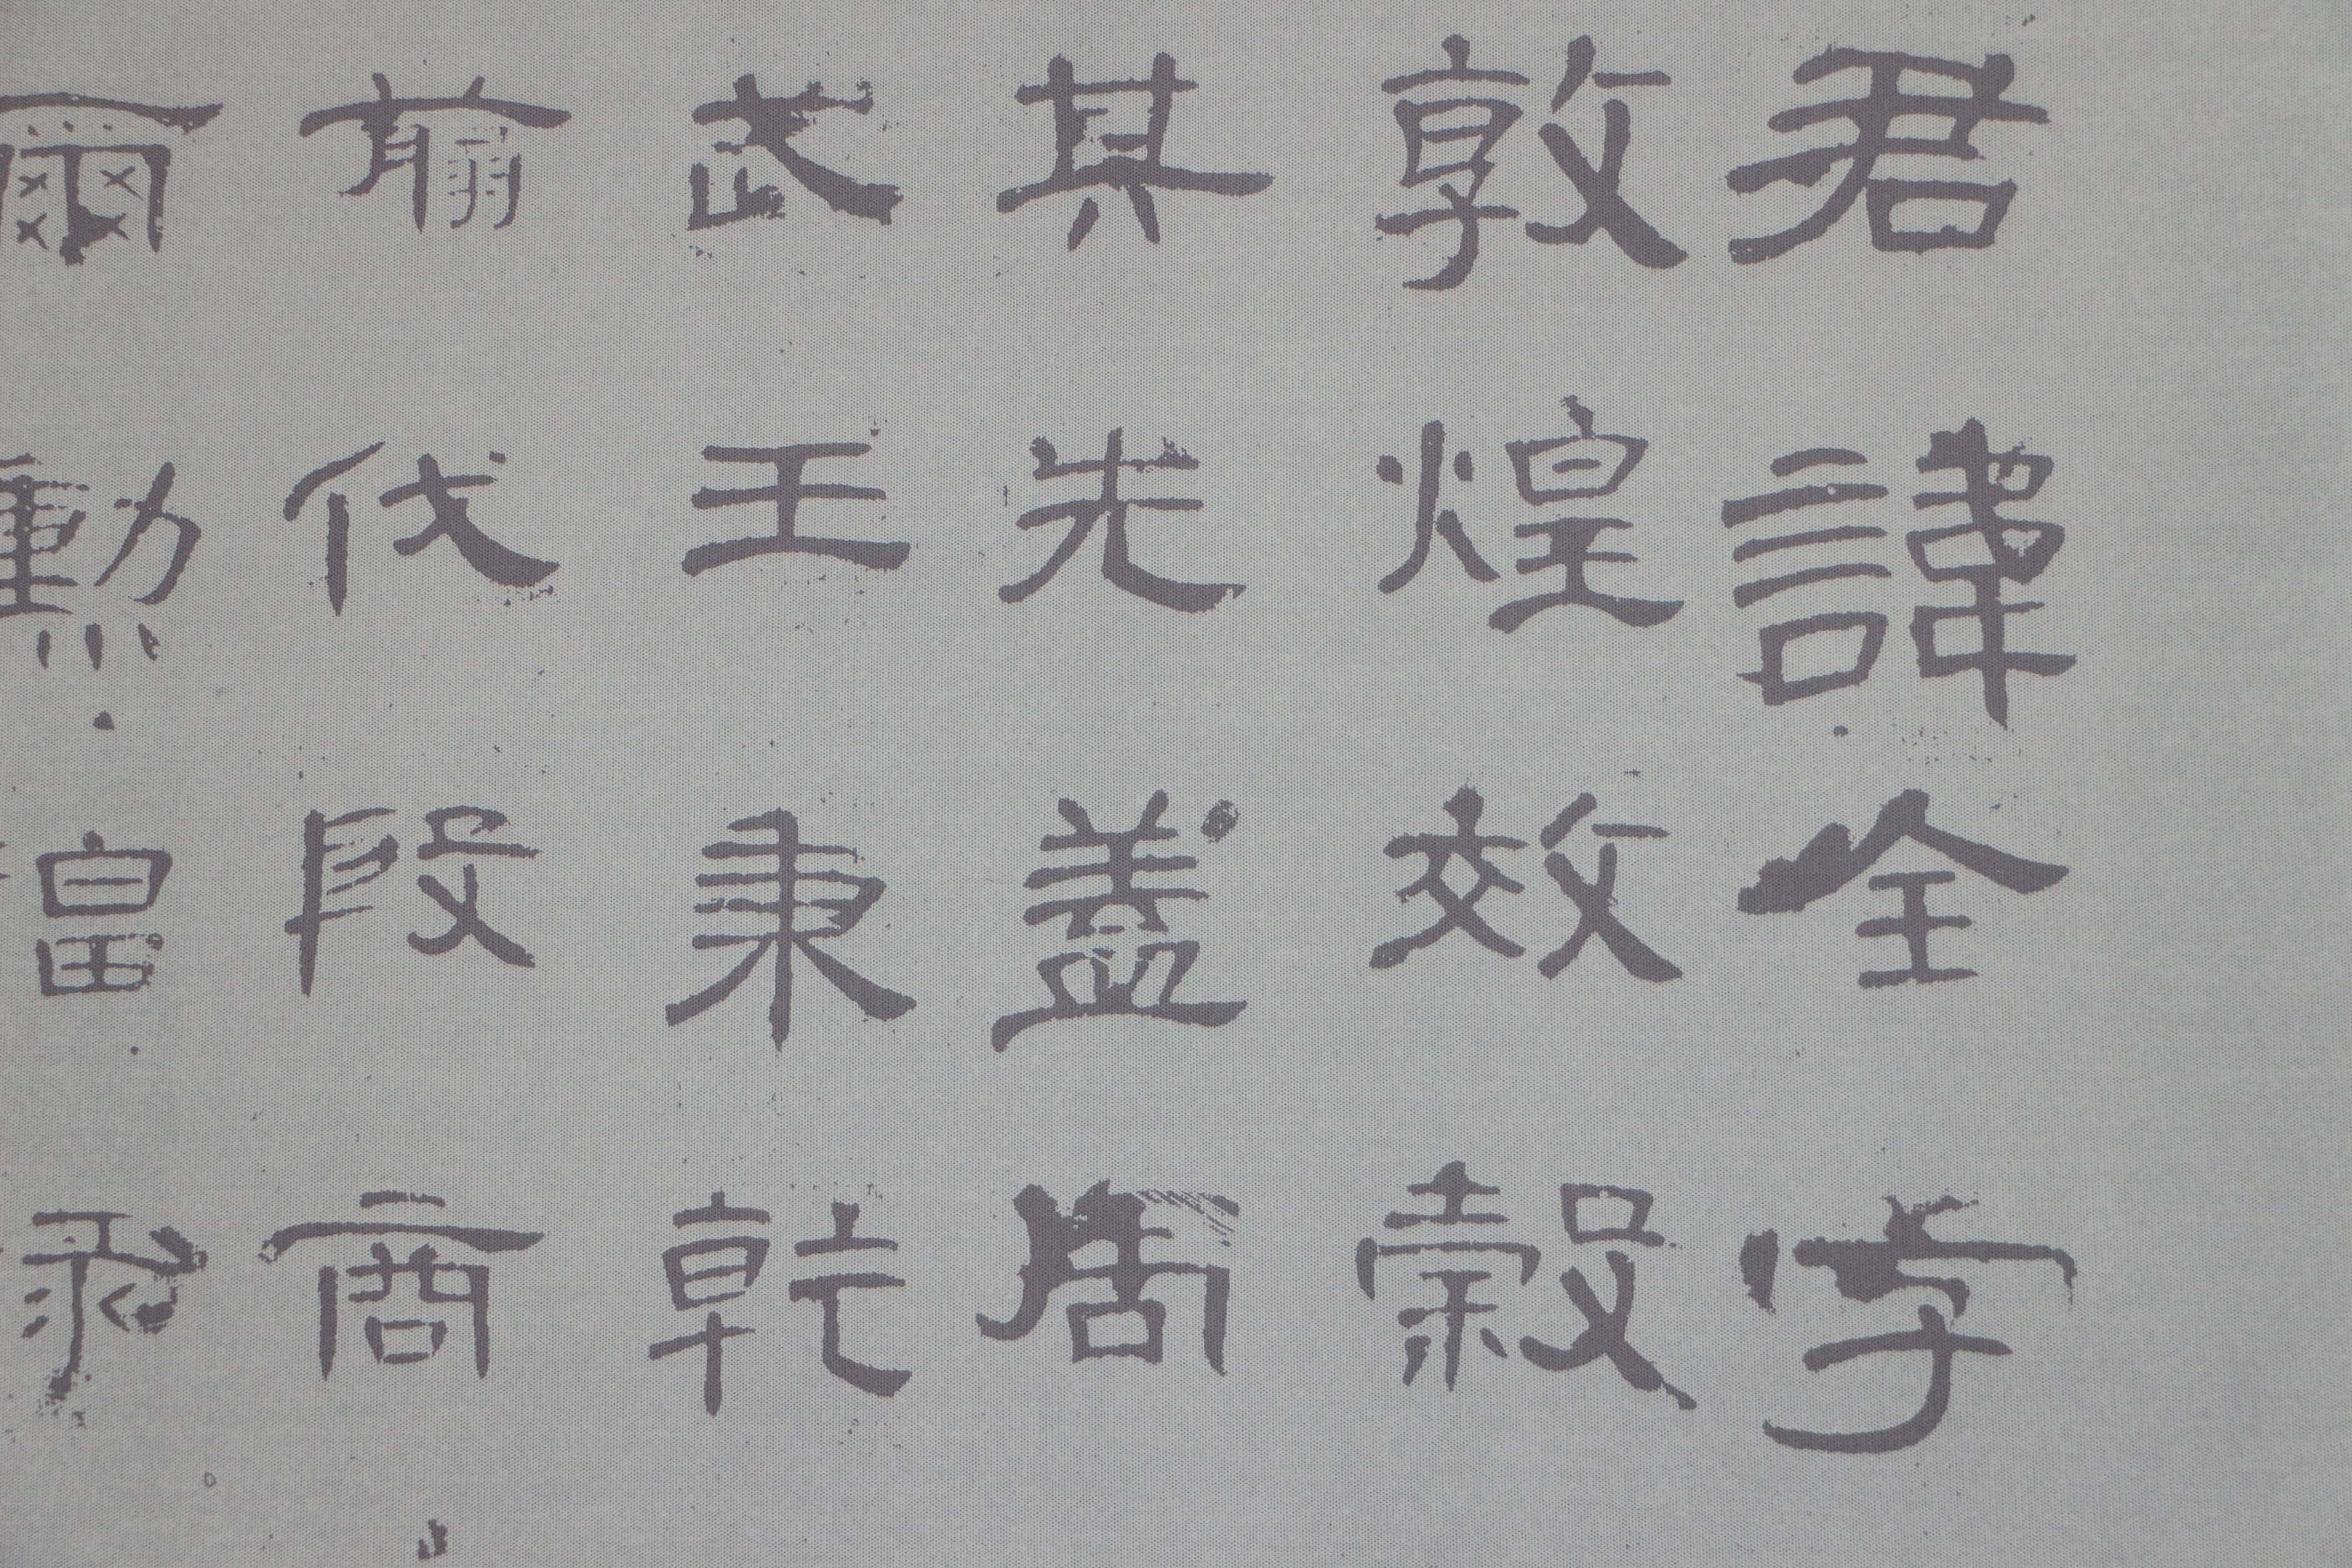 君諱全字
敦煌效穀
其先蓋周
武王秉乾
翦伐殷商
爾勳福祿